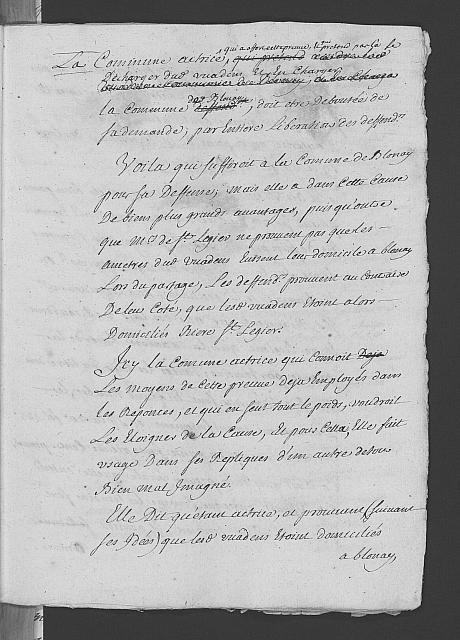 qui a offert cette preuve, & qui pretend par là se
La Commune actrice,
Decharger dud. vuadens & En Charger
de Blonay
la Commune deffend.^e, doit etre Deboutée de
sa demande, par Entiere Liberation des deffend.^rs
Voila qui suffiroit a la Comune de Blonay
pour sa Deffense; mais elle a dans Cette Cause
De bien plus grands avantages, puis qu'outre
que M.^rs de S.^t Legier ne prouvent pas que les
ancetres dud. vuadens Eussent leur domicile a blonay
Lors du partage, Les deffend.^rs prouvent au Contraire
De leur Coté, que lesd. vuadens étoint alors
Domiciliés Riere S.^t Legier.
Icy la Comune actrice qui connoit Deja
Les moyens de Cette preuve Deja Employés dans
les Reponces, et qui en sent tout le poids, voudroit
Les Eloigner de la Cause, Et pour Cella, Elle fait
usage Dans ses Repliques d'un autre detour
Bien mal Imaginé.
Elle Dit qu'étant actrice, et prouvant (suivant
ses Idées) que lesd. vuadens Etoint domiciliés
a blonay